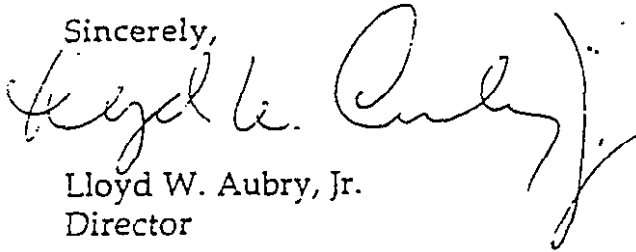 Sincerely,
Lloyd W. Aubry, Jr.
Lloyd W. Aubry, Jr.
Director